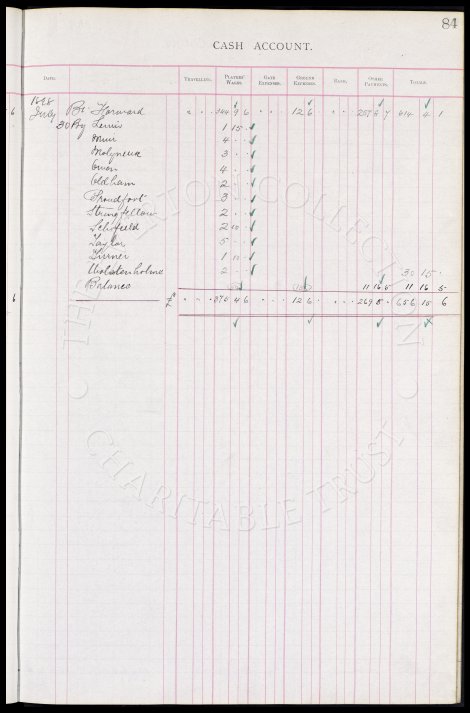 84
CASH ACCOUNT.
DATE. TRAVELLING. PLAYERS' WAGES. GATE EXPENSES. GROUND EXPENSES. BANK. OTHER PAYMENTS. TOTALS.
1898
6 July Bt. Forward 344 9 6 12 6 257 8 7 614 4 1
30 By Lewis 1 15
Muir 4
Molyneux 3
Owen 4
Oldham 2
Proudfoot 3
Stringfellow 2
Schofield 2 10
Taylor 5
Turner 1 10
Wolstenholme 2 30 15
Balance 11 16 5 11 16 5
6 £ 375 4 6 12 6 269 5 656 15 6
THE EVERTON COLLECTION
CHARITABLE TRUST